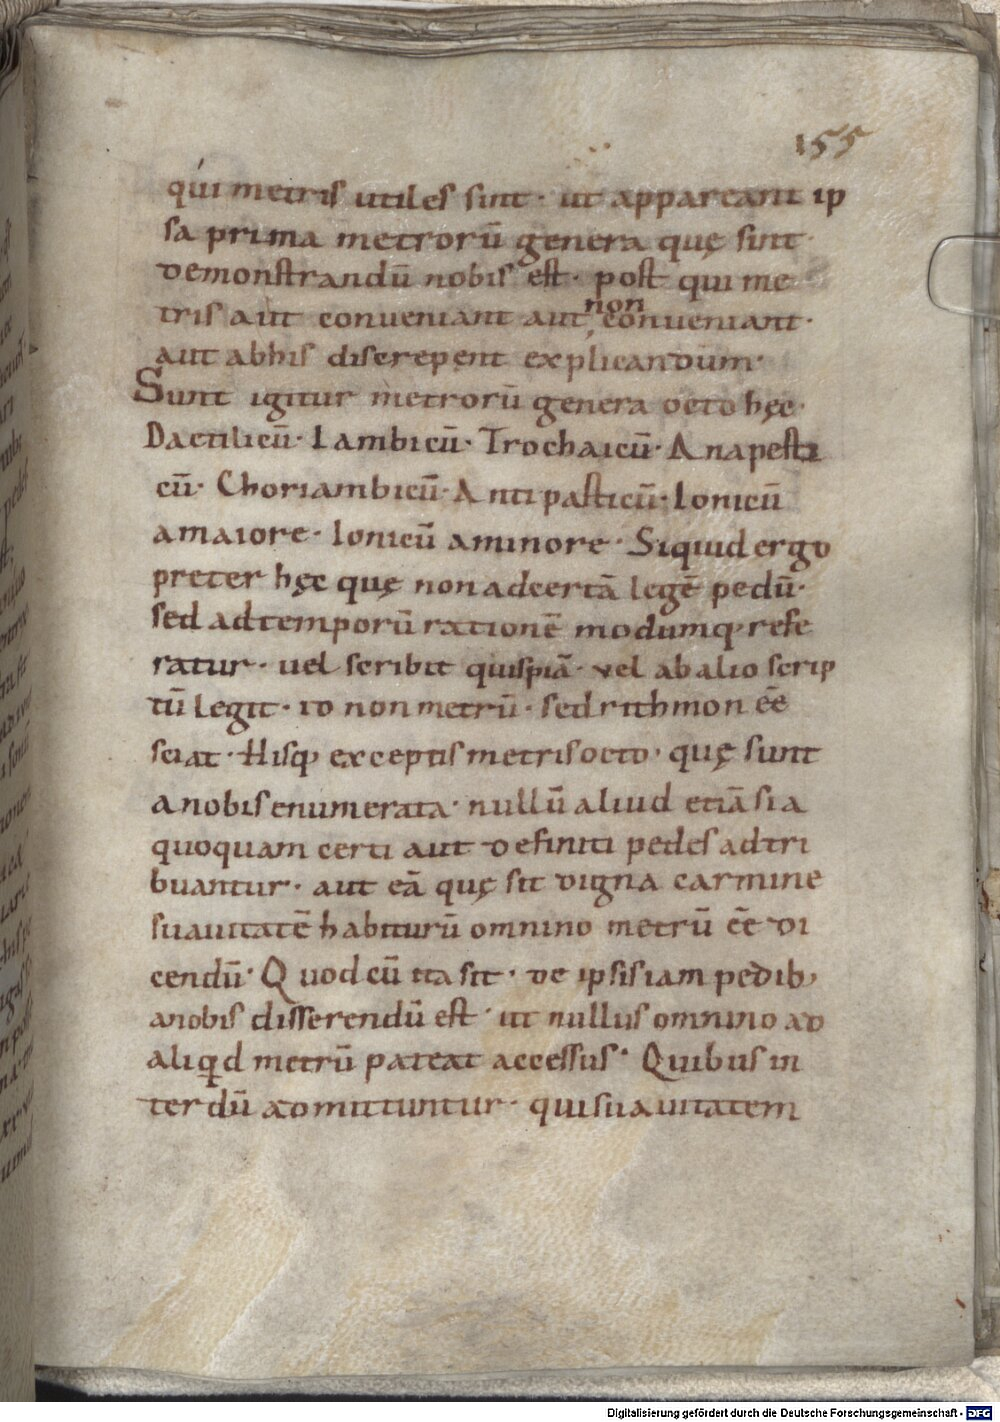 155
qui metris utiles sint · ut appareant ip
sa prima metrorū genera quę sint ·
demonstrandū nobis est · post qui me
tris aut conueniant aut non conueniant ·
aut abhis discrepent explicandum ·
Sunt igitur metrorū genera octo hęc ·
Dactilicū · Iambicū · Trochaicū · Anapesti
cū · Choriambicū · Antipasticū · Ionicū
amaiore · Ionicū aminore · Siquid ergo
preter hęc quę non adcertā legē pedū ·
sed adtemporū rationē modumq; refe
ratur · uel scribit quispiā · vel abalio scrip
tū legit · id non metrū · sed rithmon ēē
sciat · Hisq; exceptis metris octo · quę sunt
anobis enumerata · nullū aliud etiā si a
quoquam certi aut definiti pedes adtri
buantur · aut eā quę sit digna carmine
suauitatē habiturū omnino metrū ēē di
cendū · Quod cū ita sit · de ipsis iam pedib;
anobis disserendū est · ut nullus omnino ad
aliqd metrū pateat accessus · Quibus in
terdū admittuntur · qui suauitatem
Digitalisierung gefördert durch die Deutsche Forschungsgemeinschaft - DFG